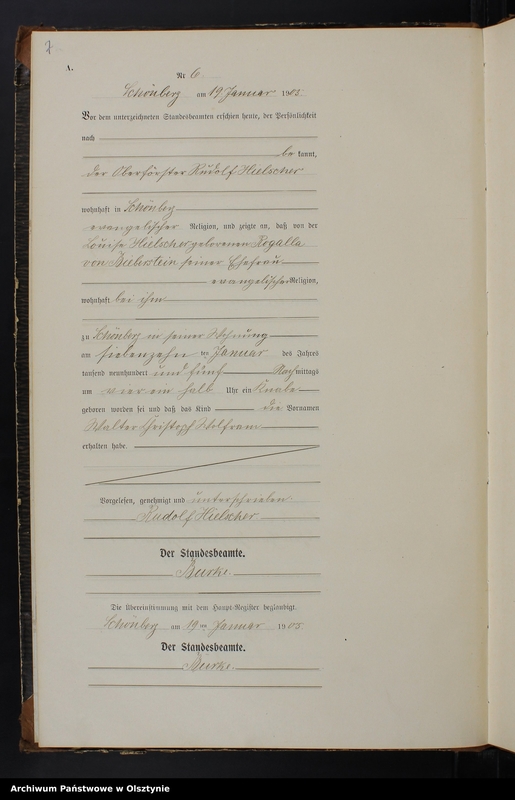 2
A.
Nr 6
Schönberg am 19 Januar 1905.
Vor dem unterzeichneten Standesbeamten erschien heute, der Persönlichkeit
nach
be kannt,
der Oberförster Rudolf Hielscher
wohnhaft in Schönberg
evangelischer Religion, und zeigte an, daß von der
Louise Hielscher geborenen Rogalla
von Bieberstein seiner Ehefrau
evangelischer Religion,
wohnhaft bei ihm
zu Schönberg in seiner Wohnung
am siebenzehn ten Januar des Jahres
tausend neunhundert und fünf Nachmittags
um vier ein halb Uhr ein Knabe
geboren worden sei und daß das Kind die Vornamen
Walter Christoph Wolfram
erhalten habe.
Vorgelesen, genehmigt und unterschrieben.
Rudolf Hielscher
Der Standesbeamte.
Die Übereinstimmung mit dem Haupt-Register beglaubigt.
Schönberg am 19 ten Januar 1905
Der Standesbeamte.
Archiwum Państwowe w Olsztynie